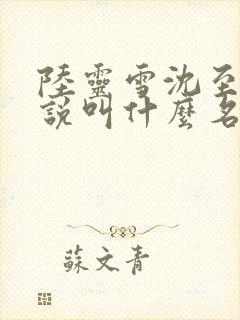 陸靈雪沈至
說叫什麼名
蘇文青